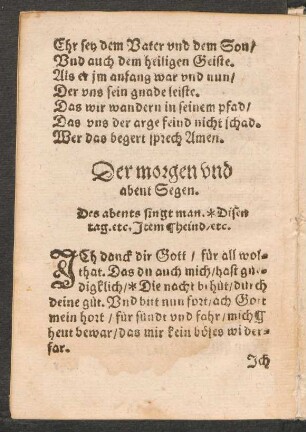 Ehr sey dem Vater vnd dem Son/
Vnd auch dem heiligen Geiste.
Als er jm anfang war vnd nun/
Der vns sein gnade leiste.
Das wir wandern in seinem pfad/
Das vns der arge feind nicht schad.
Wer das begert sprech Amen.
Der morgen vnd
abent Segen.
Des abents singt man. * Disen
tag. etc. Item ¶ heind/etc.
ICh danck dir Gott / für all wol-
that. Das du auch mich/hast gne-
digklich/ * Die nacht behüt/durch
deine güt. Vnd bitt nun fort/ach Gott
mein hort / für sündt vnd fahr/ mich ¶
heut bewar/das mir kein böses wider-
far.
Ich